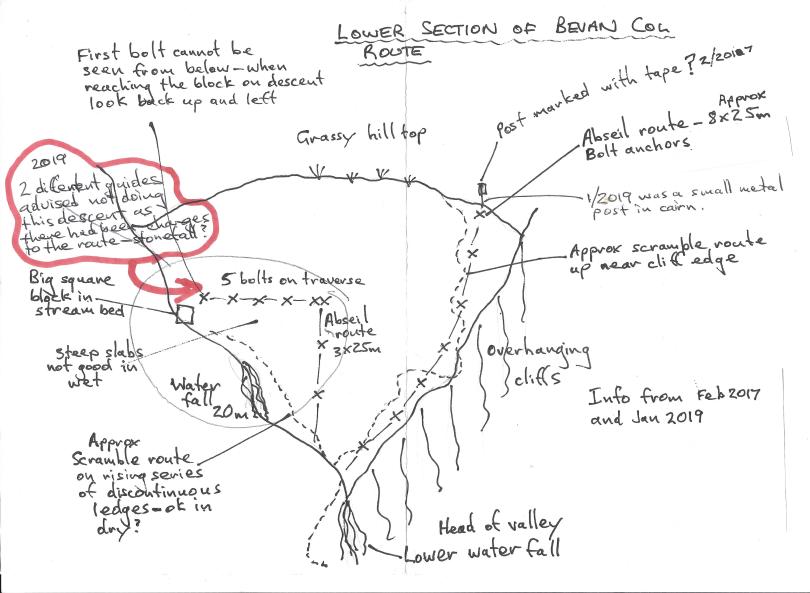 LOWER SECTION OF BEVAN COL
ROUTE
First bolt cannot be
seen from below - when
reaching the block on descent
look back up and left
Post marked with tape? 2/2017
Grassy hill top
Abseil route - Approx 8x25m
Bolt anchors.
2019
2 different guides
advised not doing
this descent as
there had been changes
to the route - stonefall?
1/2019 was a small metal
post in cairn.
Approx scramble route
up near cliff edge
Big square
block in
stream bed
5 bolts on traverse
Abseil
route
3x25m
Steep slabs
not good in
wet
Water
fall
20m
Overhanging
cliffs
Info from Feb 2017
and Jan 2019
Approx
Scramble route
on rising series
of discontinuous
ledges - ok in
dry?
Head of valley
Lower water fall